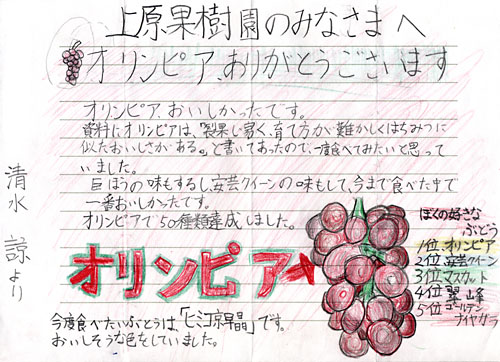 上原果樹園のみなさまへ
オリンピア、ありがとうございます
オリンピア、おいしかったです。
資料にオリンピアは、「裂果し易く、育て方が難かしくはちみつに
似たおいしさがある。」と書いてあったので、一度食べてみたいと思って
いました。
巨ほうの味もするし、安芸クイーンの味もして、今まで食べた中で
一番おいしかったです。
オリンピアで50種類達成しました。
オリンピア
今度食べたいぶどうは、「ヒミコ」です。
おいしそうな色をしていました。
ぼくの好きな
ぶどう
1位 オリンピア
2位 安芸クイーン
3位 マスカット
4位 翠峰
5位 ゴールデン
ナイヤガラ
清水 諒より